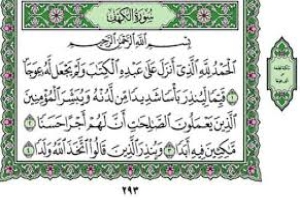 سُورَةُ الْكَهْفِ
بِسْمِ اللَّهِ الرَّحْمَٰنِ الرَّحِيمِ
الْحَمْدُ لِلَّهِ الَّذِي أَنْزَلَ عَلَىٰ عَبْدِهِ الْكِتَٰبَ وَلَمْ يَجْعَل لَّهُ عِوَجَا
١ قَيِّمًا لِّيُنذِرَ بَأْسًا شَدِيدًا مِّن لَّدُنْهُ وَيُبَشِّرَ الْمُؤْمِنِينَ
الَّذِينَ يَعْمَلُونَ الصَّٰلِحَٰتِ أَنَّ لَهُمْ أَجْرًا حَسَنًا ٢
مَّٰكِثِينَ فِيهِ أَبَدًا ٣ وَيُنذِرَ الَّذِينَ قَالُوا اتَّخَذَ اللَّهُ وَلَدًا ٤
٢٩٣